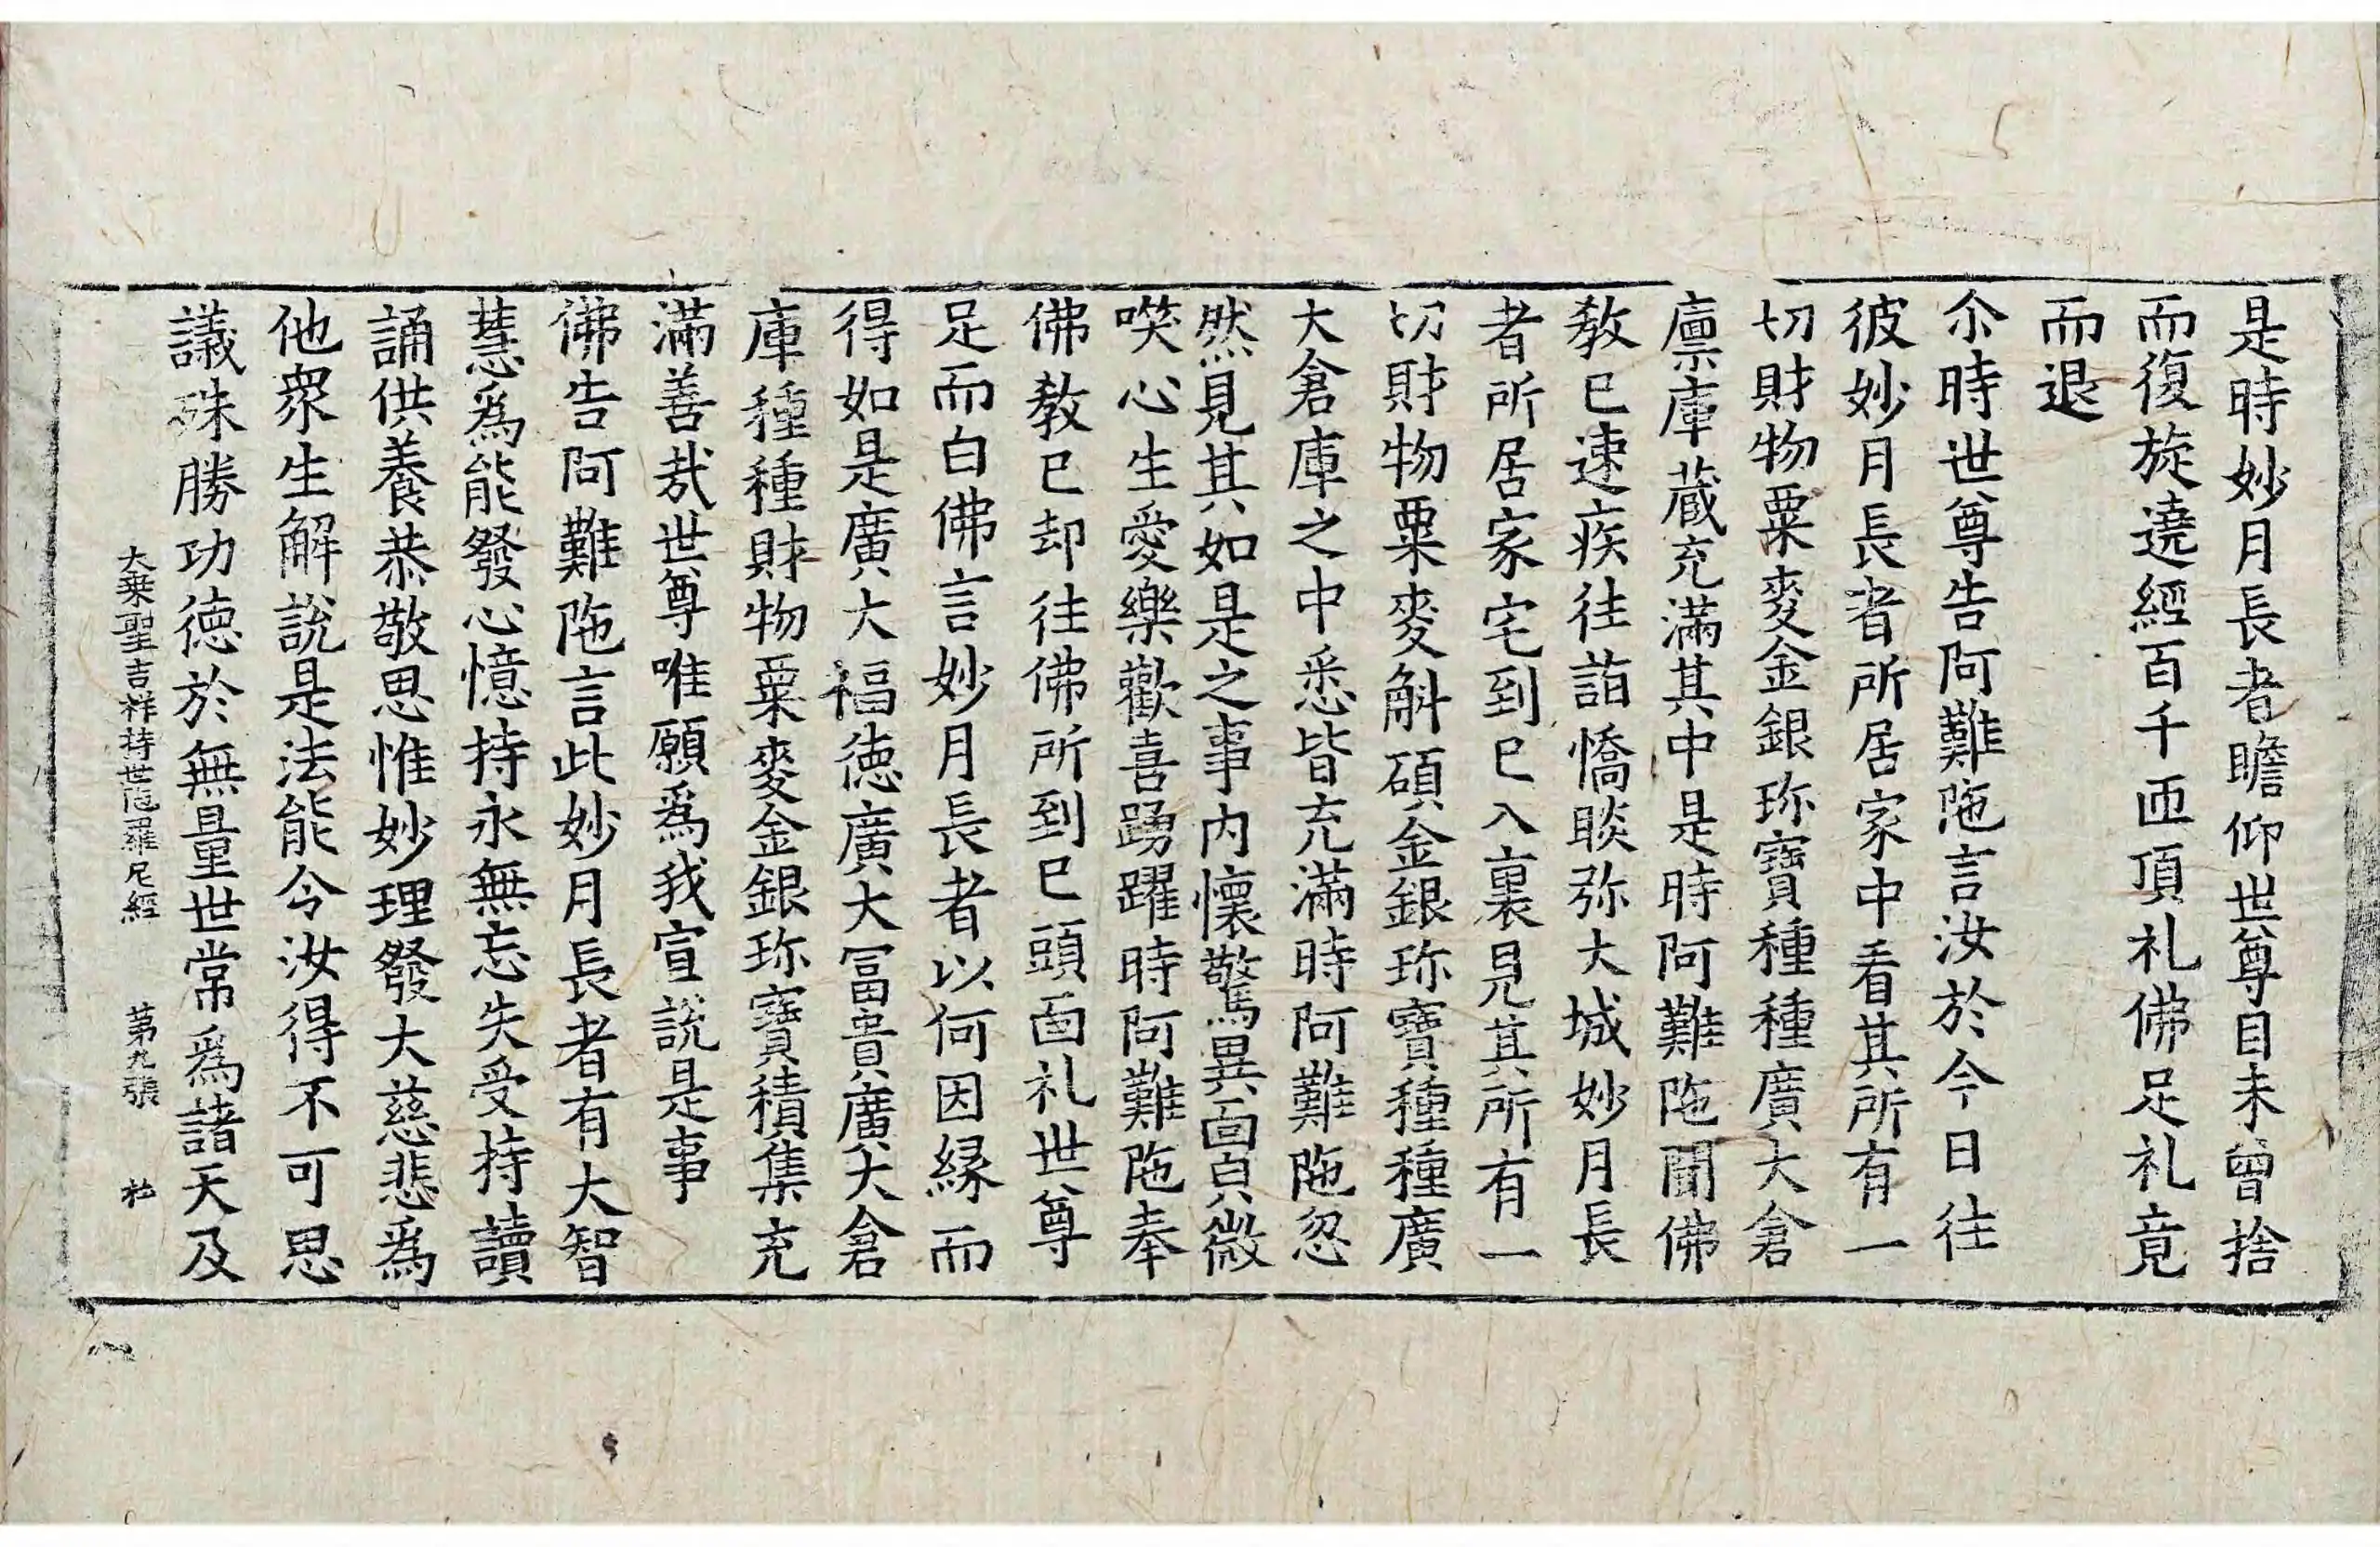 是時妙月長者瞻仰世尊目未曾捨
而復旋遶經百千匝頂礼佛足礼竟
而退
尒時世尊告阿難陁言汝於今日往
彼妙月長者所居家中看其所有一
切財物粟麥金銀珎寶種種廣大倉
廪庫蔵充滿其中是時阿難陁聞佛
教已速疾往詣憍睒弥大城妙月長
者所居家宅到已入裏見其所有一
切財物粟麥斛碩金銀珎寶種種廣
大倉庫之中悉皆充滿時阿難陁忽
然見其如是之事内懷驚異面皃微
㗛心生愛樂歡喜踴躍時阿難陁奉
佛教已却往佛所到已頭面礼世尊
足而白佛言妙月長者以何因縁而
得如是廣大福徳廣大冨貴廣大倉
庫種種財物粟麥金銀珎寶積集充
滿善哉世尊唯願爲我宣說是事
佛告阿難陁言此妙月長者有大智
慧爲能發心憶持永無忘失受持讀
誦供養恭敬思惟妙理發大慈悲爲
他衆生解說是法能令汝得不可思
議殊勝功徳於無量世常爲諸天及
大乗聖吉祥持世陁羅尼經 第九張